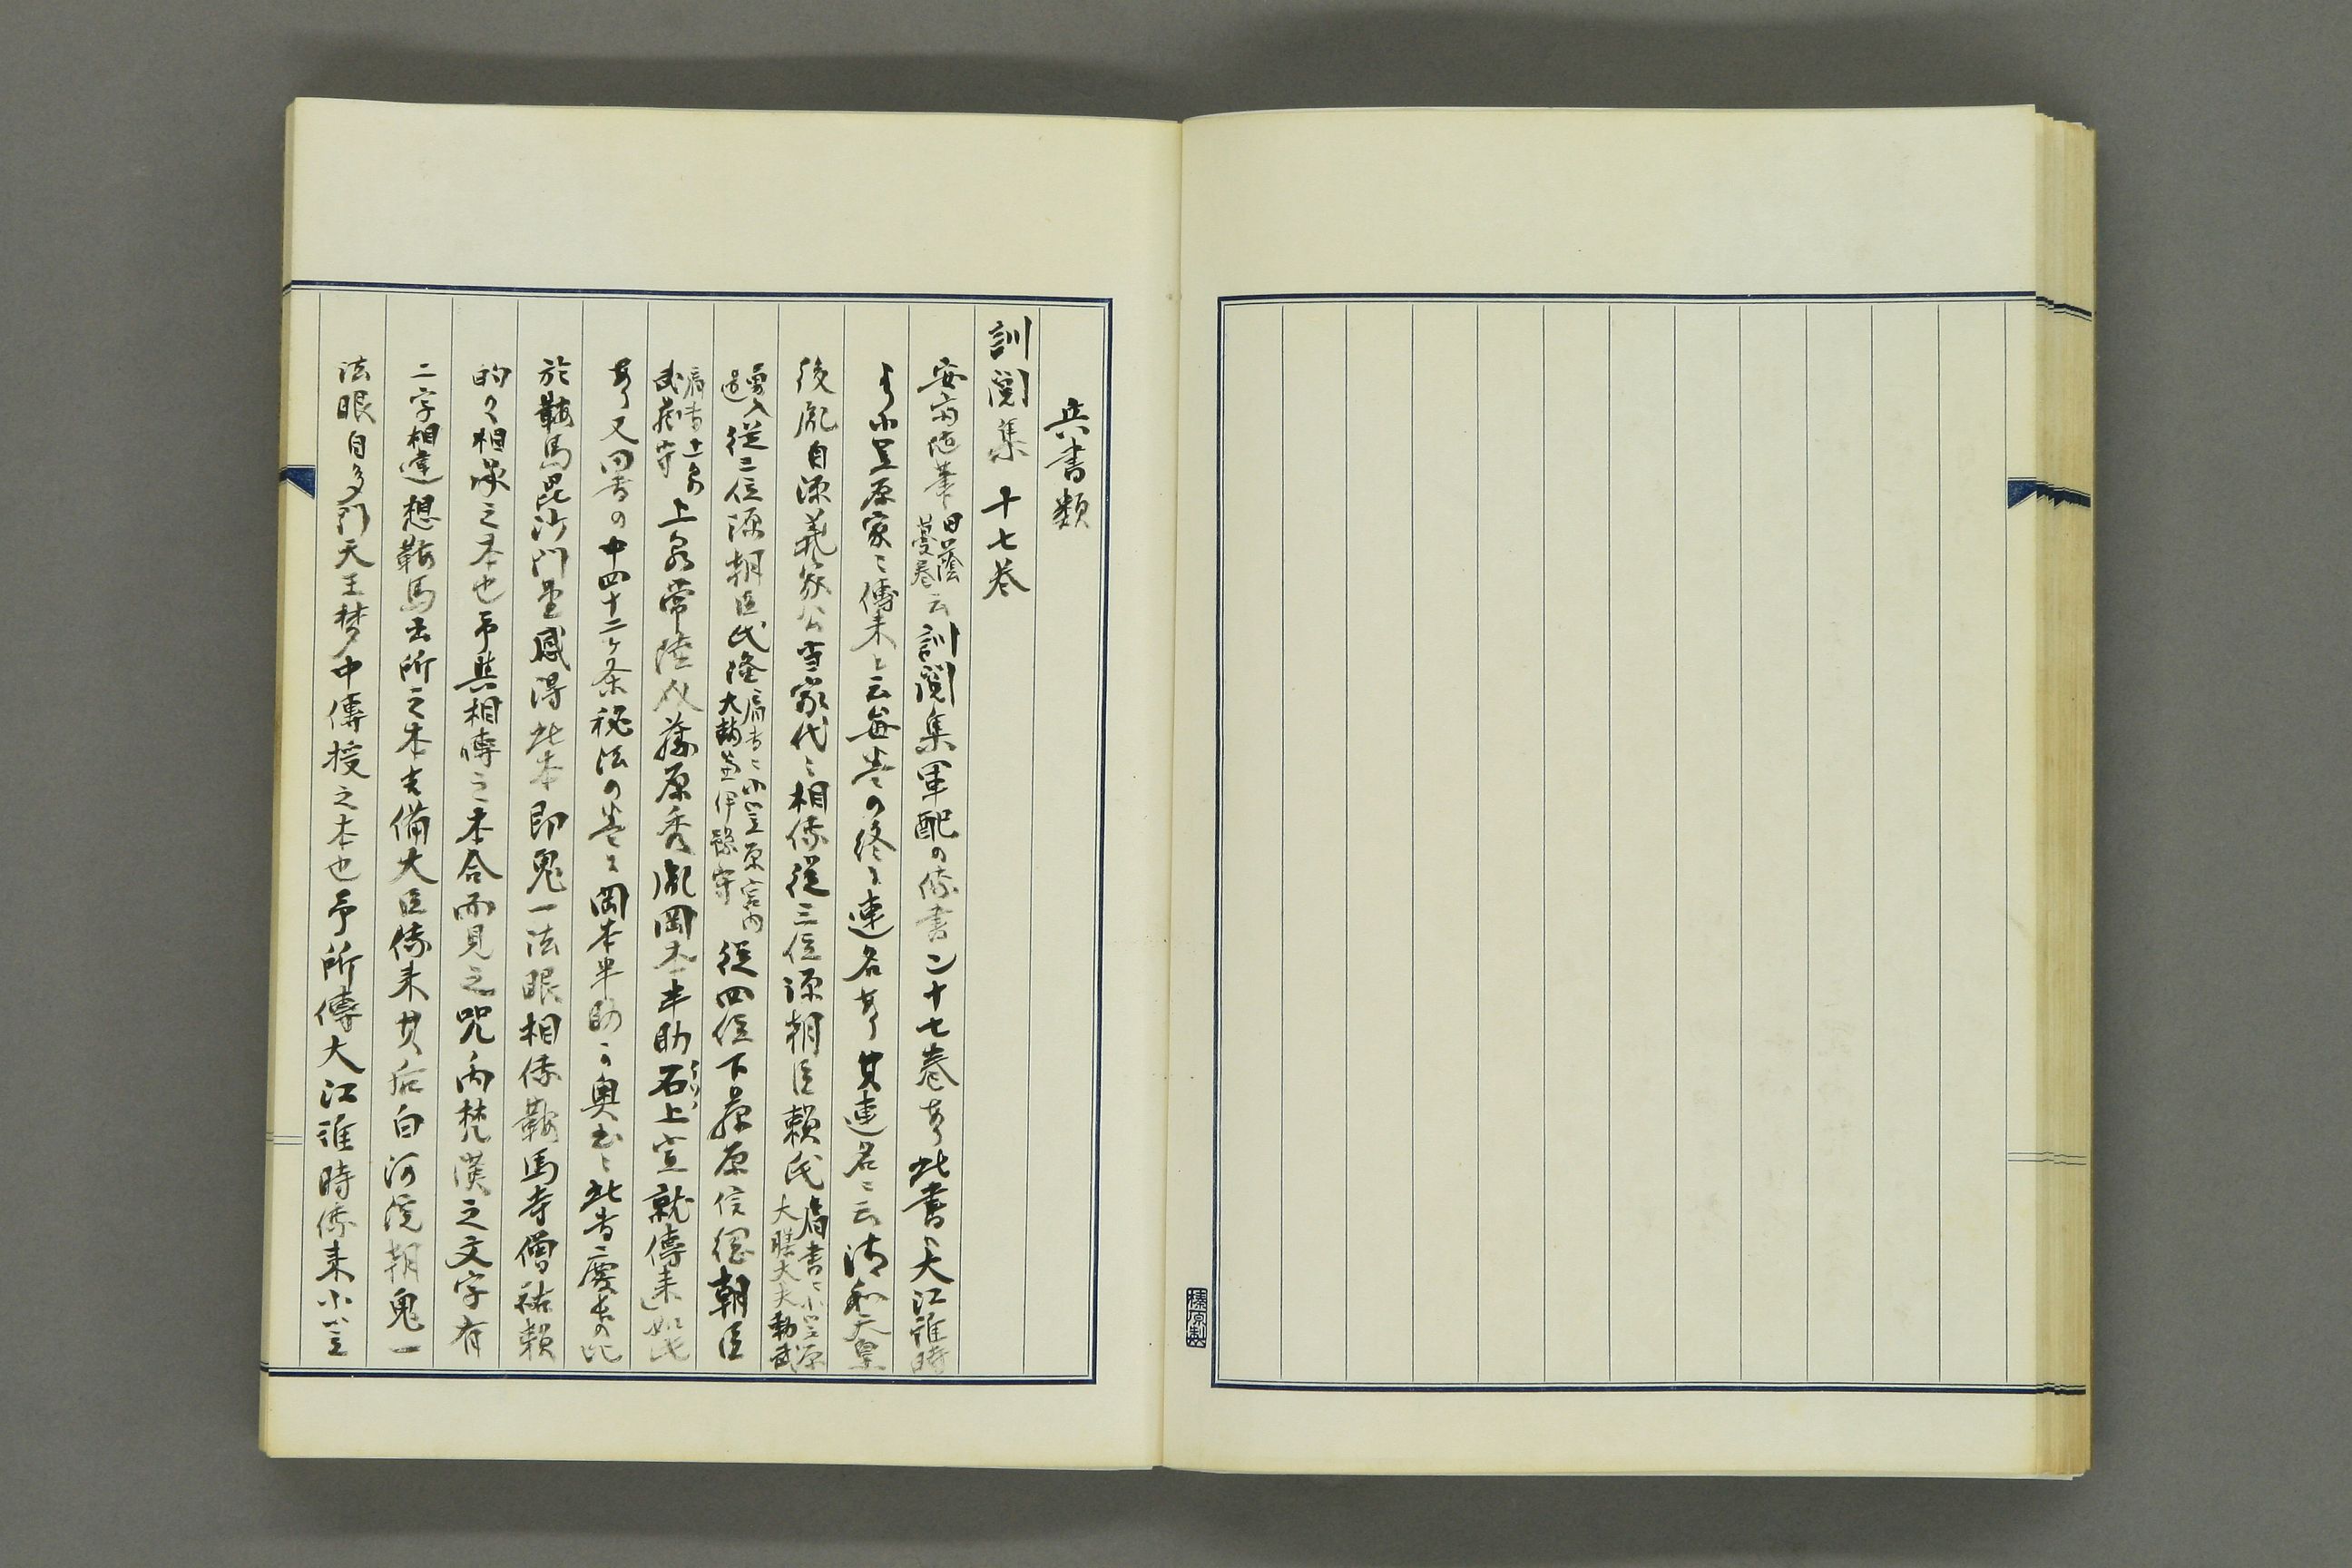 兵書類
訓閲集 十七巻
安斎随筆 日蔭蔓巻 云訓閲集軍配の傳書ニ十七巻あり此書ハ大江維時
より小笠原家ニ傳来と云毎巻の終に連名あり其連名ニ云清和天皇
後胤自源義家公当家代ニ相傳従三位源朝臣頼氏 肩書ニ小笠原 大膳大夫勅武
勇入道 従三位源朝臣氏隆 肩書ニ小笠原宮内 大輔兼伊豫守 従四位下藤原信綱朝臣
肩書上泉 武蔵守 上泉常陸介藤原秀胤岡本半助石上宣就傳来如此
あり又同書の中四十二ヶ条秘法の巻に岡本半助か奥書ニ此書慶長の比
於鞍馬毘沙門堂感得此本即鬼一法眼相傳鞍馬寺僧祐頼
的々相承之本也予與相傳之本合而見之咒内梵漢之文字有
二字相違想鞍馬出所之本吉備大臣傳来其后白河院朝鬼一
法眼自多門天王梦中傳授之本也予所傳大江維時傳来小笠
榛原製